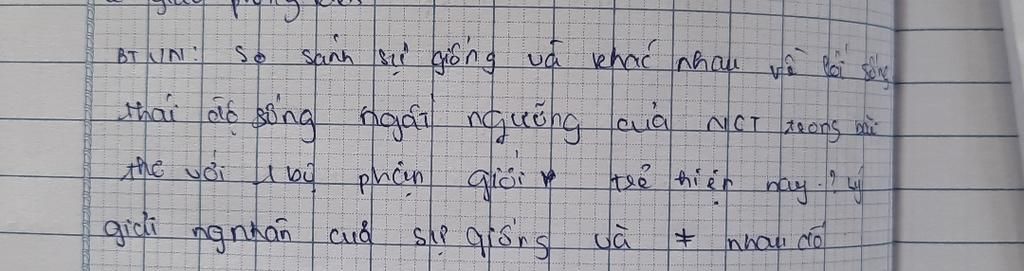 BTVN: So sánh sự giống và khác nhau về lối sống
thái độ sống ngất ngưởng của NCT trong bài
thơ với 1 bộ phận giới trẻ hiện nay? Lý
giải ngnhân của sự giống và ≠ nhau đó